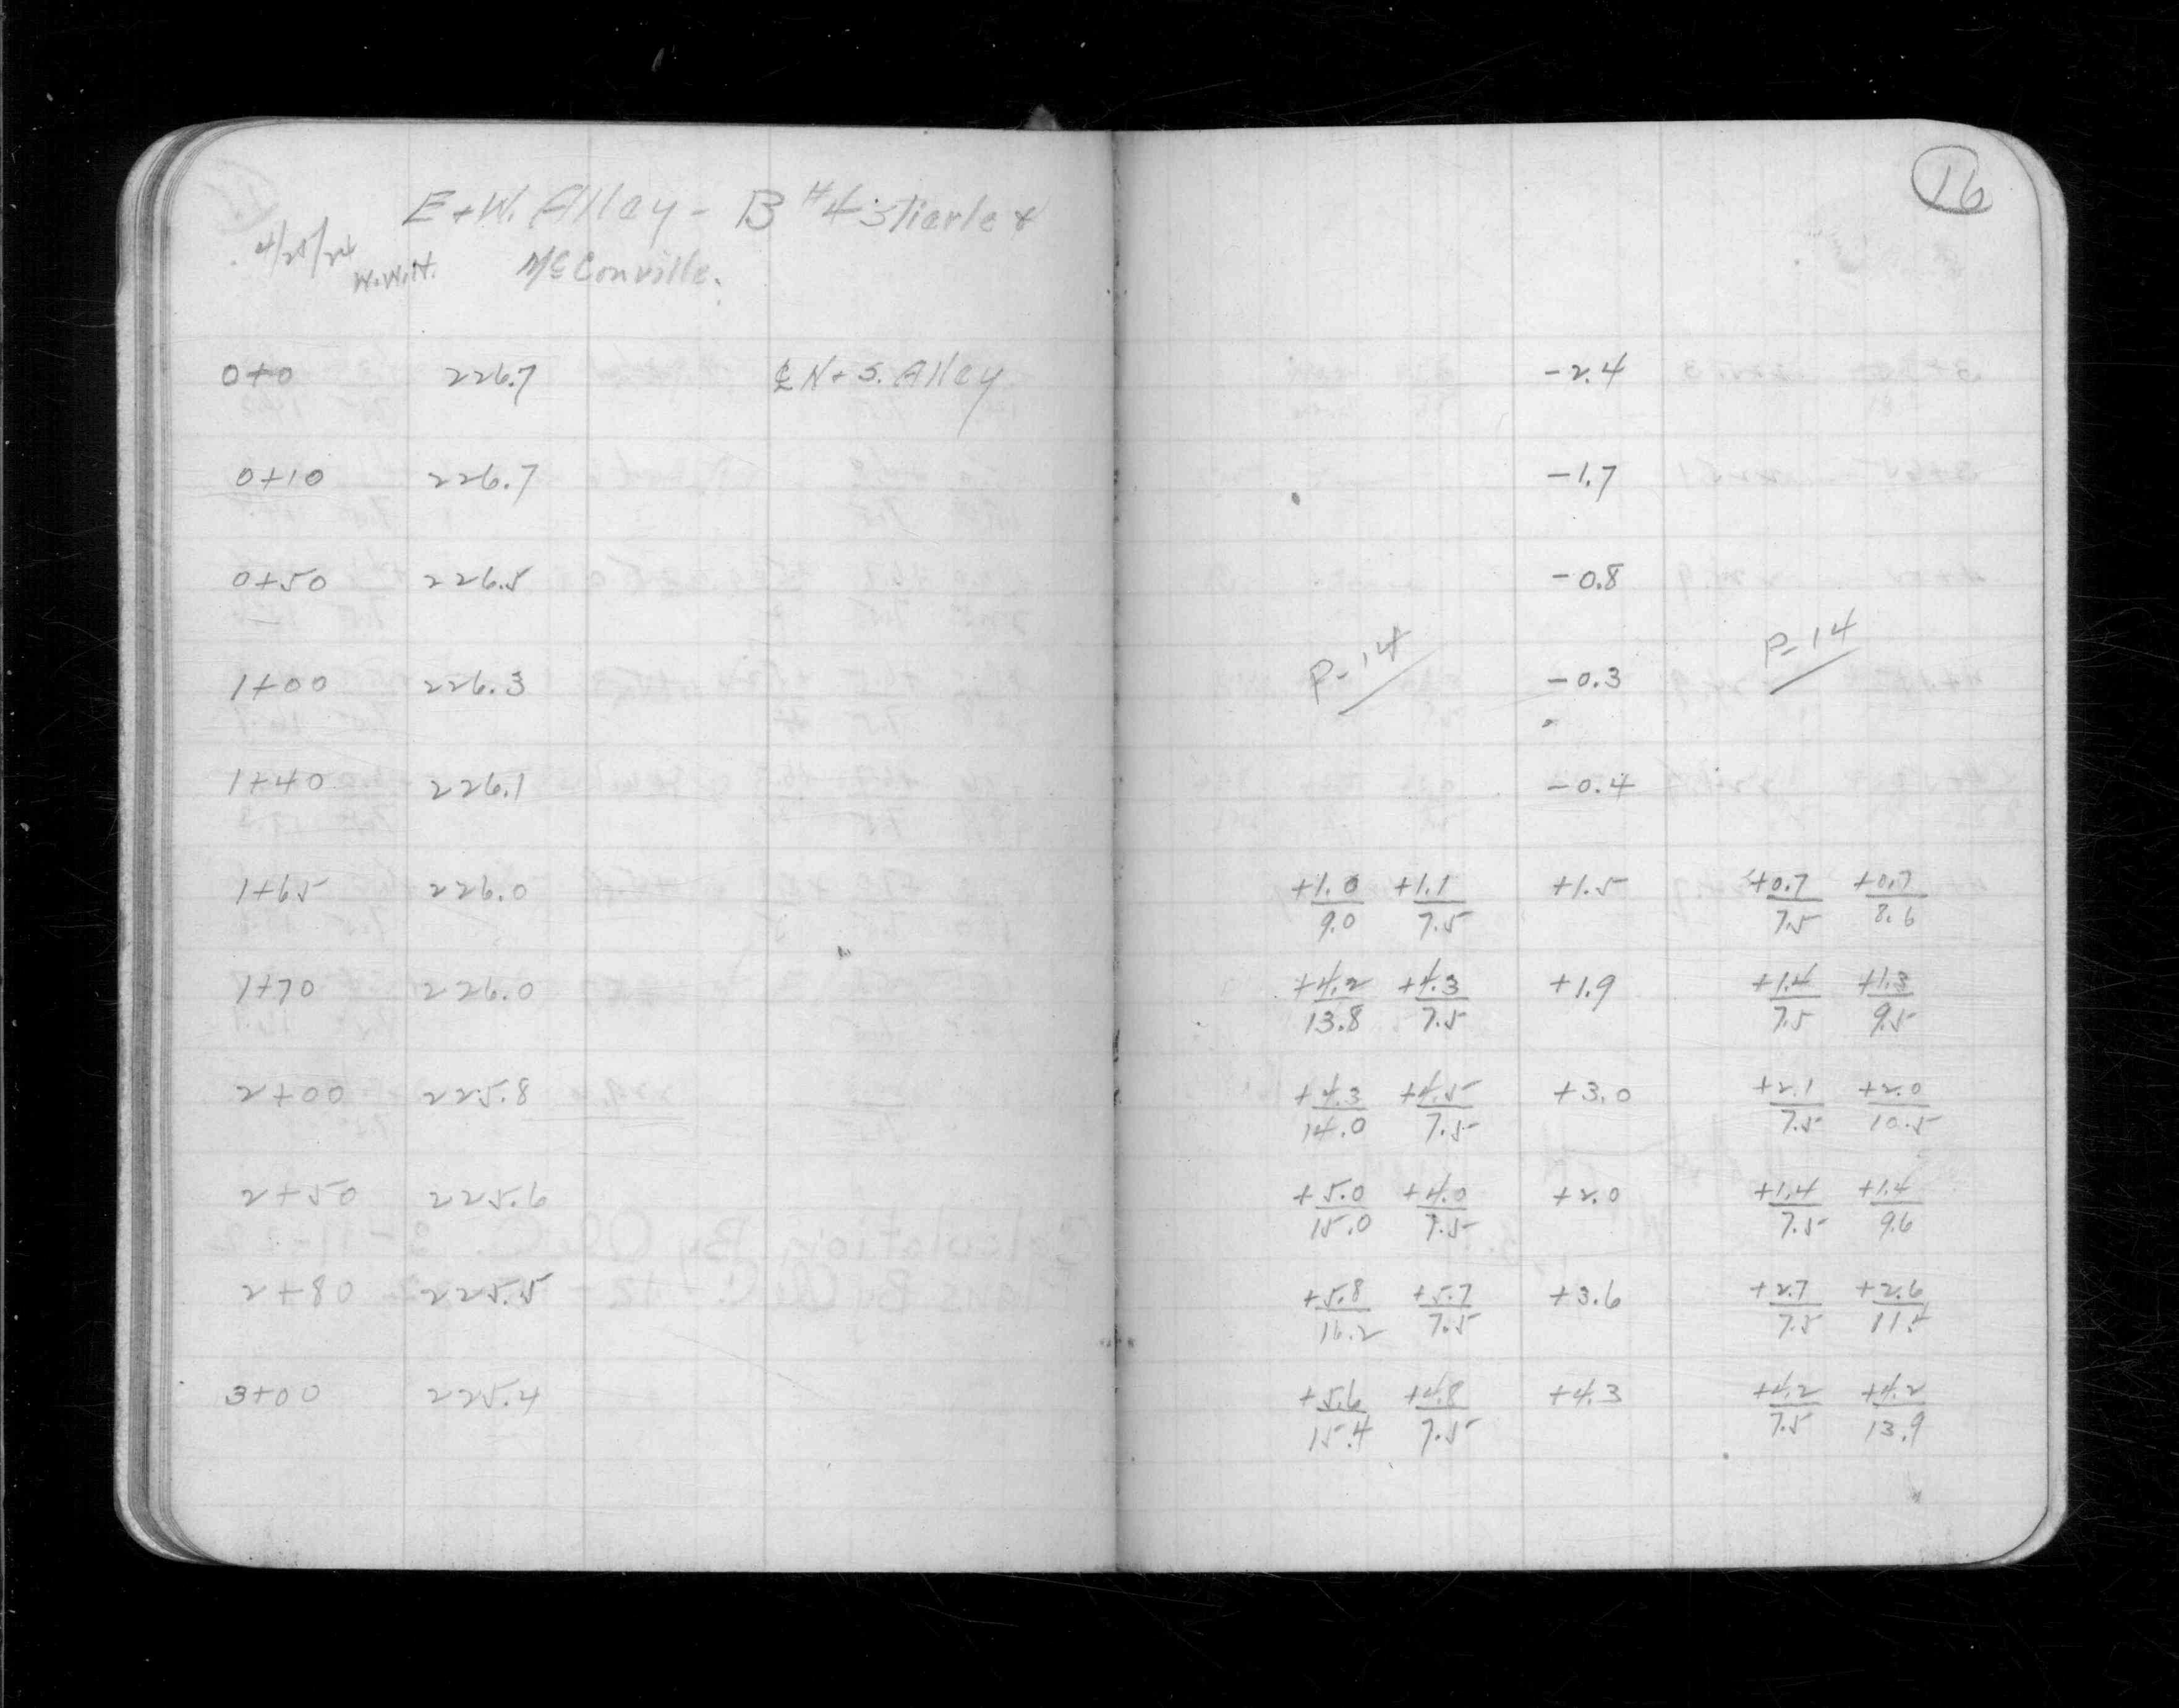 16
E+W. Alley - B #4 Stierle &
McConville.
4/25/24
W.W.H.
0+0 226.7 ℄ N+S. Alley -2.4
0+10 226.7 -1.7
0+50 226.5 -0.8
P-14 P-14
1+00 226.3 -0.3
1+40 226.1 -0.4
1+65 226.0 +1.0 +1.1 +1.5 +0.7 +0.7
9.0 7.5 7.5 8.6
1+70 226.0 +4.2 +4.3 +1.9 +1.4 +1.3
13.8 7.5 7.5 9.5
2+00 225.8 +4.3 +4.5 +3.0 +2.1 +2.0
14.0 7.5 7.5 10.5
2+50 225.6 +5.0 +4.0 +2.0 +1.4 +1.4
15.0 7.5 7.5 9.6
2+80 225.5 +5.8 +5.7 +3.6 +2.7 +2.6
16.2 7.5 7.5 11.4
3+00 225.4 +5.6 +4.8 +4.3 +4.2 +4.2
15.4 7.5 7.5 13.9